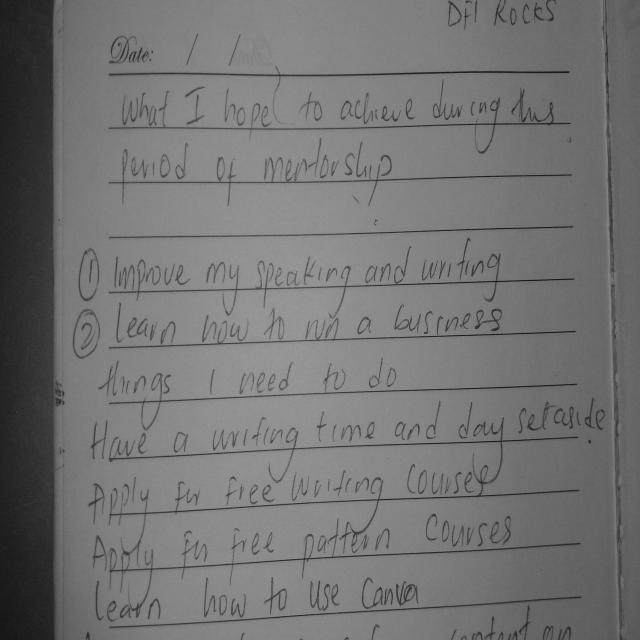 DFI ROCKS
Date: / /
What I hope to achieve during this
period of mentorship
① Improve my speaking and writing
② Learn how to run a business
things I need to do
Have a writing time and day set aside
Apply for free writing Courses
Apply for free pattern Courses
Learn how to Use Canva
content an